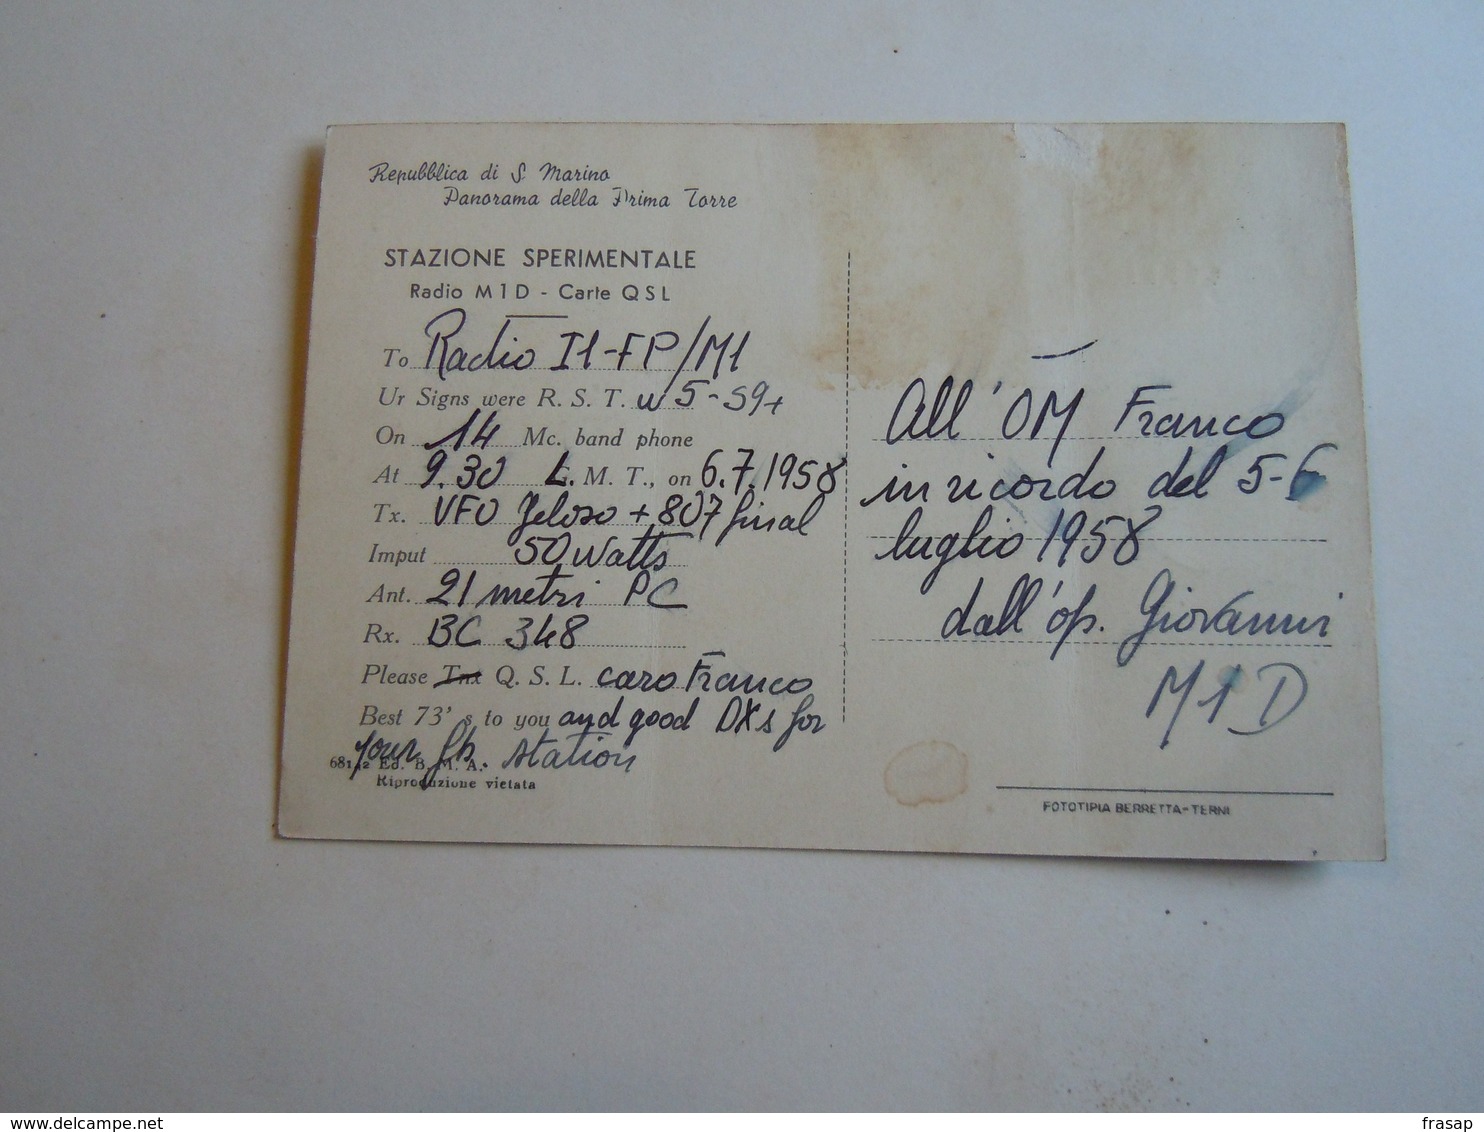 Repubblica di S. Marino
Panorama della Prima Torre
STAZIONE SPERIMENTALE
Radio M1D - Carte QSL
To Radio I1-FP/M1
Ur Signs were R. S. T. W5-S9+
On 14 Mc. band phone
At 9.30 L. M. T., on 6.7.1958
Tx. VFO Geloso + 807 final
Imput 50 Watts
Ant. 21 metri PC
Rx. BC 348
Please Tnx Q. S. L. caro Franco
Best 73' s to you and good DXs for
your station
Ed. B. M. A.
Riproduzione vietata
All' OM Franco
in ricordo del 5-6
luglio 1958
dall'op. Giovanni
M1D
FOTOTIPIA BERRETTA-TERNI
delcampe.net
frasap